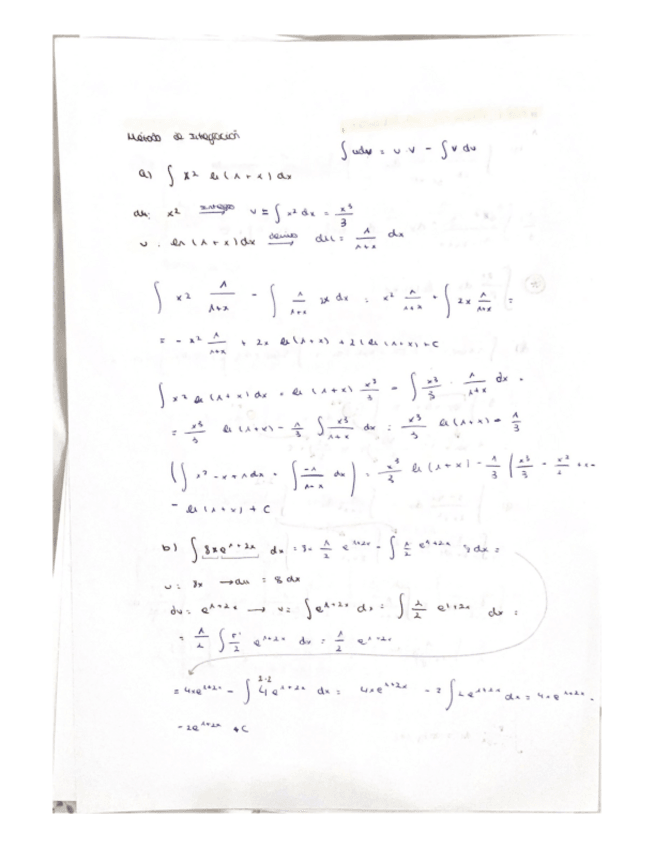 Método de Integración
∫ udv = u v - ∫ v du
a) ∫ x² ln(1+x) dx
dv: x² integro→ v = ∫ x² dx = x³/3
u: ln(1+x) dx derivo→ du = 1/(1+x) dx
∫ x² 1/(1+x) - ∫ 1/(1+x) 2x dx = x² 1/(1+x) - ∫ 2x 1/(1+x) =
= - x² 1/(1+x) + 2x ln(1+x) + 2(ln(1+x)) + C
∫ x² ln(1+x) dx = ln(1+x) x³/3 - ∫ x³/3 · 1/(1+x) dx =
= x³/3 ln(1+x) - 1/3 ∫ x³/(1+x) dx = x³/3 ln(1+x) - 1/3
(∫ x² - x + 1 dx + ∫ -1/(1+x) dx) = x³/3 ln(1+x) - 1/3 (x³/3 - x²/2 + x -
- ln(1+x) + C
b) ∫ 8x e^(1+2x) dx = 8x 1/2 e^(1+2x) - ∫ 1/2 e^(1+2x) 8 dx =
u = 8x → du = 8 dx
dv = e^(1+2x) → v = ∫ e^(1+2x) dx = ∫ 2/2 e^(1+2x) dx =
= 1/2 e^(1+2x)
= 4x e^(1+2x) - ∫ 4 e^(1+2x) dx = 4x e^(1+2x) - 2 ∫ 2 e^(1+2x) dx = 4x e^(1+2x) -
- 2e^(1+2x) + C